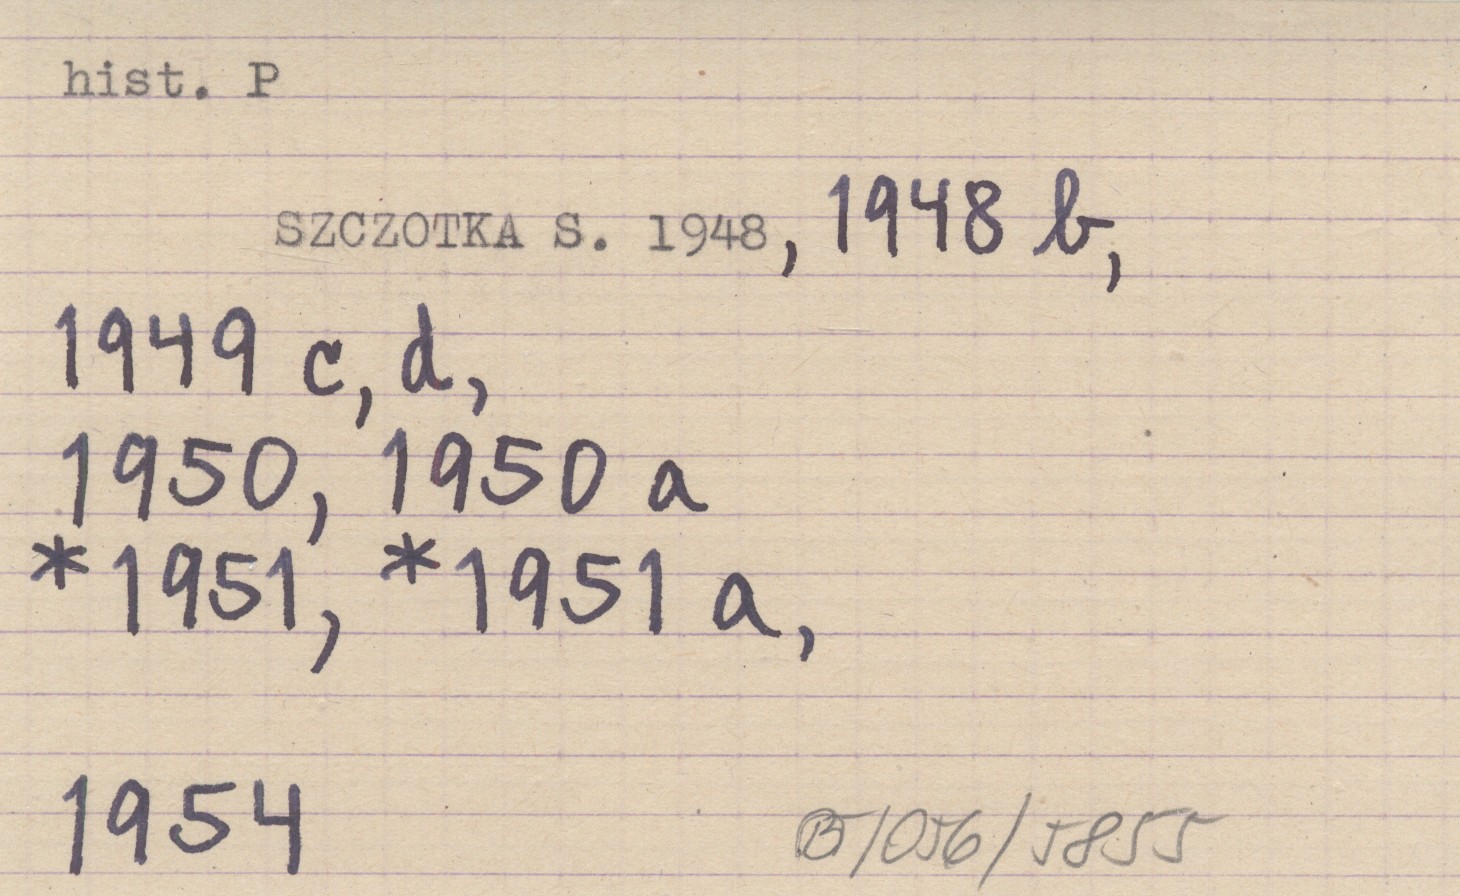 hist. P
SZCZOTKA S. 1948, 1948 b,
1949 c, d,
1950, 1950 a
*1951, *1951 a,
1954
B/056/5855